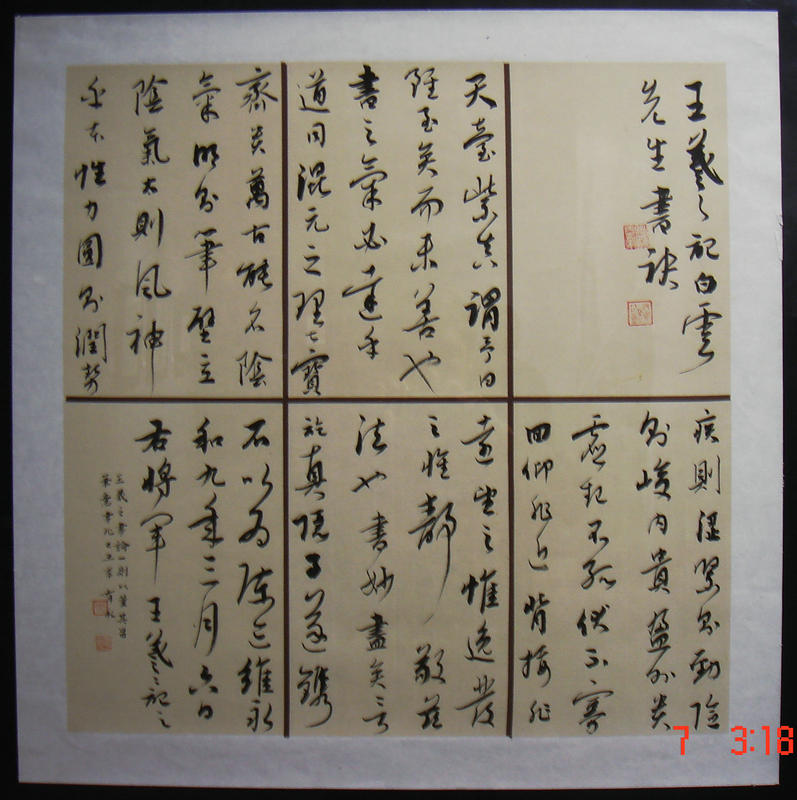 王羲之記白雲
先生書訣
天臺紫真謂予曰
雖至矣而未善也
書之氣必達乎
道同混元之理七寶
齊貴萬古能名陰
氣明則筆壁立
陰氣太則風神
乎本性力圓則潤勢
疾則澀緊則勁險
則峻內貴盈外貴
虛起不孤伏不寡
回仰非近背接非
遠望之惟逸發
之惟靜敬茲
法也書妙盡矣言
訖真隱子遂鐫
石以為陳迹維永
和九年三月六日
右將軍王羲之記之
王羲之書論一則以董其昌
筆意書
7 3:18